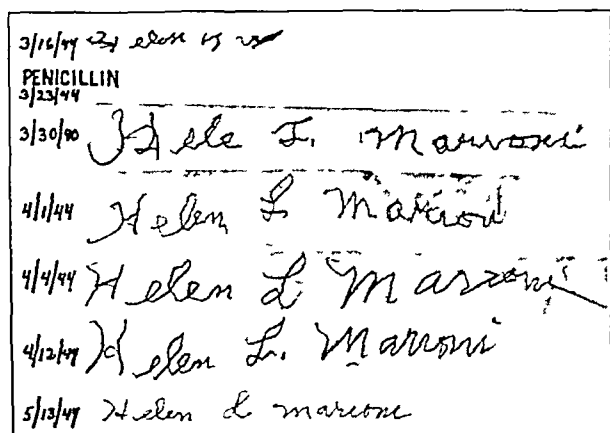 3/16/44
PENICILLIN
3/23/44
3/30/40 Hele L. Marroni
4/1/44 Helen L Marroni
4/4/44 Helen L Marroni
4/12/44 Helen L. Marroni
5/13/44 Helen L marroni